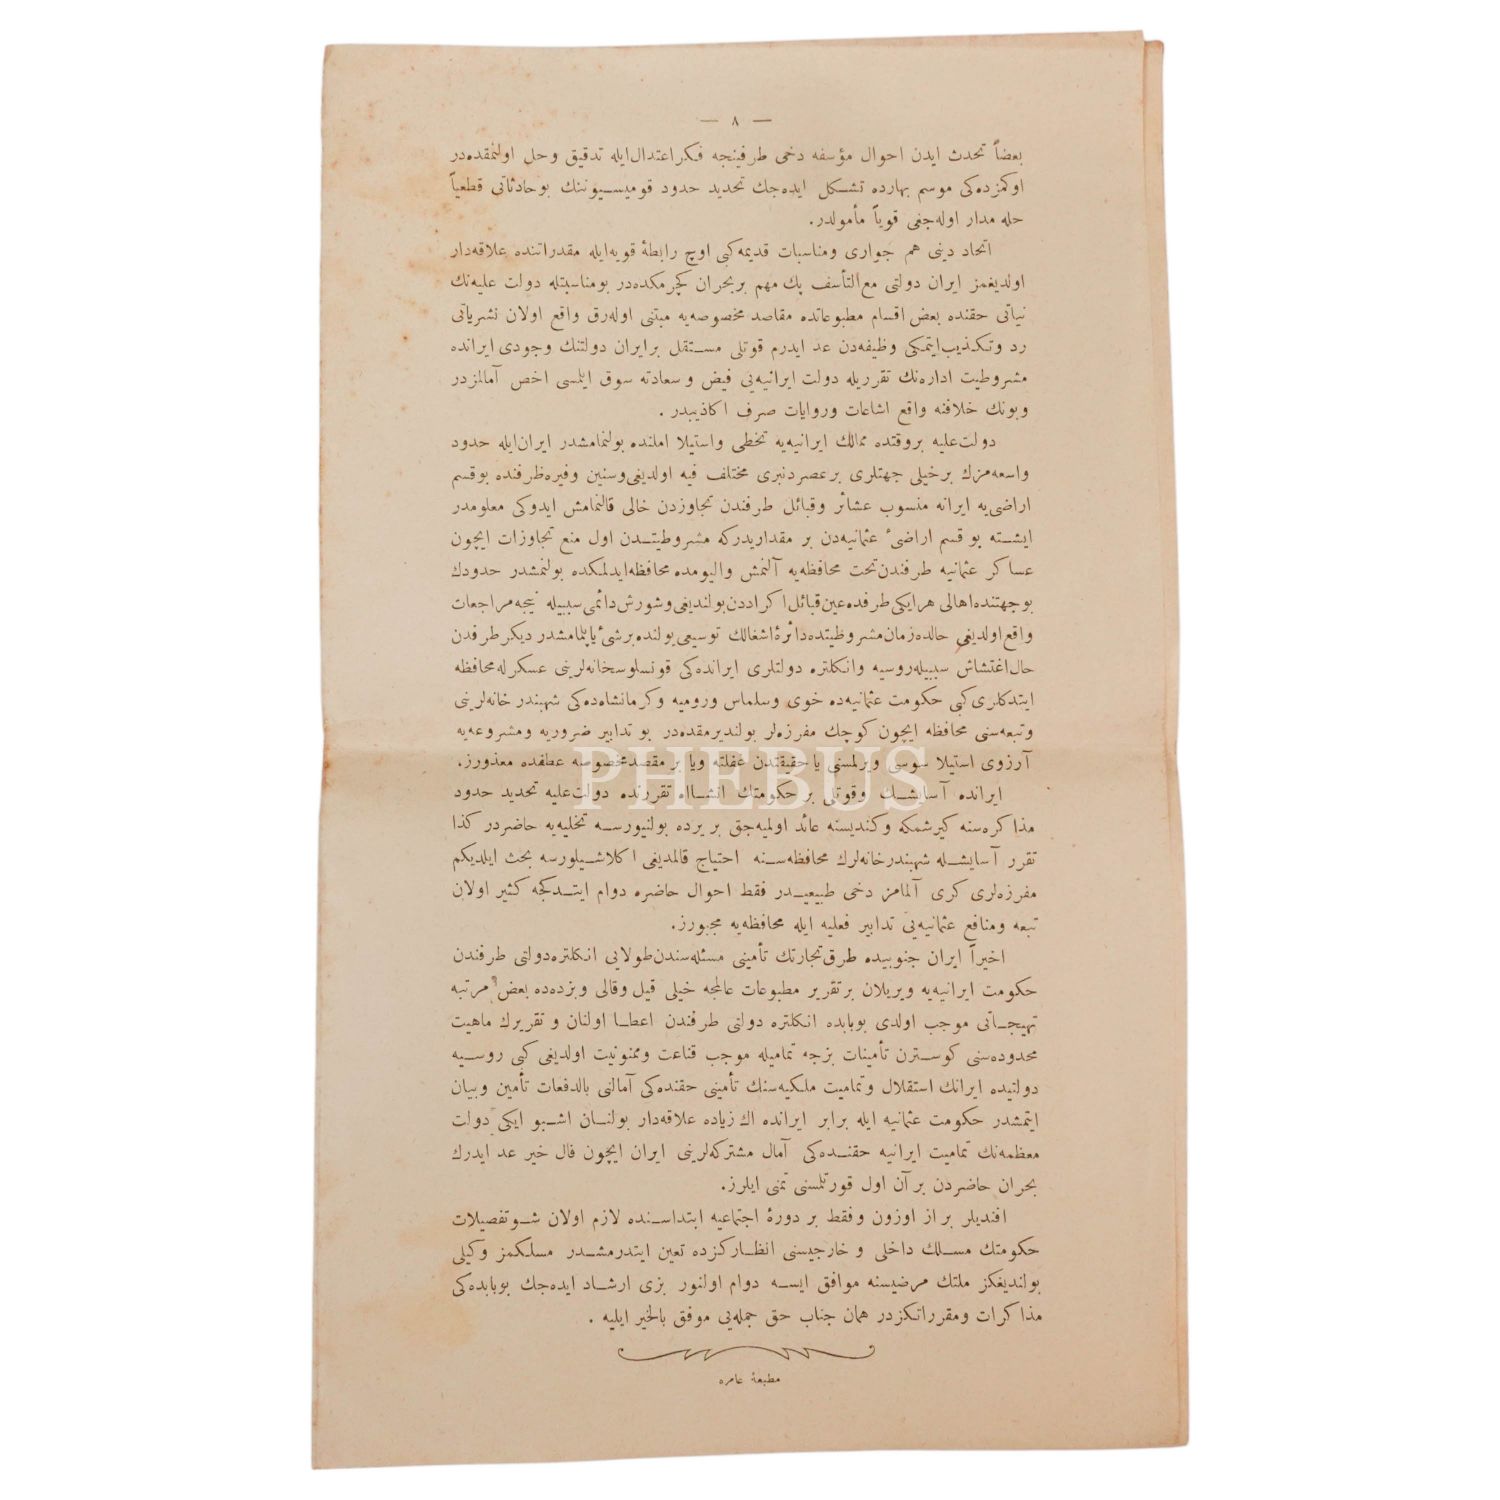 — ٨ —
بعضاً تحدث ایدن احوال مؤسفه دخی طرفینجه فکر اعتدال ایله تدقیق وحل اولنمقده‌در
اوکمزده‌کی موسم بهارده تشکل ایده‌جك تحدید حدود قومیسیوننك بو حادثاتی قطعیاً
حله مدار اوله‌جغی قویاً مأمولدر.
اتحاد دینی هم جواری ومناسبات قدیمه کبی اوچ رابطهٔ قویه‌ایله مقدراتنده علاقه‌دار
اولدیغمز ایران دولتی مع‌التأسف پك مهم بربحران کچرمکده‌در بومناسبتله دولت علیه‌نك
نیاتی حقنده بعض اقسام مطبوعاتده مقاصد مخصوصه‌یه مبتنی اوله‌رق واقع اولان نشریاتی
رد وتکذیب‌ایتمکی وظیفه‌دن عد ایدرم قوتلی مستقل برایران دولتنك وجودی ایرانده
مشروطیت اداره‌نك تقرریله دولت ایرانیه‌یی فیض و سعادته سوق ایلمسی اخص آمالمزدر
وبونك خلافنه واقع اشاعات وروایات صرف اکاذیبدر .
دولت‌علیه بروقتده ممالك ایرانیه‌یه تخطی واستیلا املنده بولنمامشدر ایران‌ایله حدود
واسعه‌مزك برخیلی جهتلری برعصردنبری مختلف فیه اولدیغی‌وسنین وفیره‌ظرفنده بوقسم
اراضی‌یه ایرانه منسوب عشائر وقبائل طرفندن تجاوزدن خالی قالنمامش ایدوکی معلومدر
ایشته بو قسم اراضیٔ عثمانیه‌دن بر مقداریدرکه مشروطیتدن اول منع تجاوزات ایچون
عساکر عثمانیه طرفندن‌تحت محافظه‌یه آلنمش والیومده محافظه‌ایدلمکده بولنمشدر حدودك
بوجهتنده‌اهالی هرایکی‌طرفده‌عین‌قبائل‌اکراددن‌بولندیغی‌وشورش‌دائمی‌سببیله نیجه‌مراجعات
واقع‌اولدیغی حالده‌زمان‌مشروطیتده‌دائرهٔ‌اشغالك توسیعی‌یولنده‌برشیٔ‌یاپلمامشدر دیکرطرفدن
حال‌اغتشاش سببیله‌روسیه وانکلتره دولتلری ایرانده‌کی قونسلوسخانه‌لرینی عسکرله‌محافظه
ایتدکلری‌کبی حکومت عثمانیه‌ده خوی وسلماس ورومیه وکرمانشاه‌ده‌کی شهبندر خانه‌لرینی
وتبعه‌سنی محافظه ایچون کوچك مفرزه‌لر بولندیرمقده‌در بو تدابیر ضروریه ومشروعه‌یه
آرزوی استیلا سوسی ویرلمسنی یا حقیقتدن غفلته ویا بر مقصدمخصوصه عطفده معذورز.
PHEBUS
ایرانده آسایشك وقوتلی برحکومتك انشاالله تقررنده دولت‌علیه تحدید حدود
مذاکره‌سنه کیرشمکه وکندیسنه عائد اولمیه‌جق بریرده بولنیورسه تخلیه‌یه حاضردر کذا
تقرر آسایشله شهبندرخانه‌لرك محافظه‌سنه احتیاج قالمدیغی اکلاشیلورسه بحث ایلدیکم
مفرزه‌لری کری آلمامز دخی طبیعیدر فقط احوال حاضره دوام ایتدکجه کثیر اولان
تبعه ومنافع عثمانیه‌یی تدابیر فعلیه ایله محافظه‌یه مجبورز.
اخیراً ایران جنوبیده طرق‌تجارتك تأمینی مسئله‌سندن‌طولایی انکلتره‌دولتی طرفندن
حکومت ایرانیه‌یه ویریلان برتقریر مطبوعات عالمجه خیلی قیل وقالی وبزده‌ده بعض مرتبه
تهیجاتی موجب اولدی بوبابده انکلتره دولتی طرفندن اعطا اولنان و تقریرك ماهیت
محدوده‌سنی کوسترن تأمینات بزجه تمامیله موجب قناعت وممنونیت اولدیغی کبی روسیه
دولتیده ایرانك استقلال وتمامیت ملکیه‌سنك تأمینی حقنده‌کی آمالنی بالدفعات تأمین وبیان
ایتمشدر حکومت عثمانیه ایله برابر ایرانده اك زیاده علاقه‌دار بولنان اشبو ایکی دولت
معظمه‌نك تمامیت ایرانیه حقنده‌کی آمال مشترکه‌لرینی ایران ایچون فال خیر عد ایدرك
بحران حاضردن بر آن اول قورتلمسنی تمنی ایلرز.
افندیلر براز اوزون وفقط بر دورهٔ اجتماعیه ابتداسنده لازم اولان شو تفصیلات
حکومتك مسلك داخلی و خارجیسنی انظارکزده تعین ایتدرمشدر مسلکمز وکیلی
بولندیغکز ملتك مرضیسنه موافق ایسه دوام اولنور بزی ارشاد ایده‌جك بوبابده‌کی
مذاکرات ومقرراتکزدر همان جناب حق جمله‌یی موفق بالخیر ایلیه .
مطبعهٔ عامره